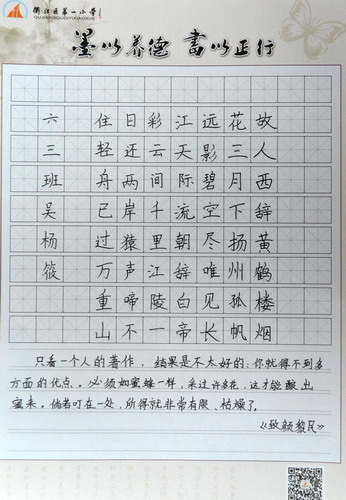 衢江区第一小学
QUJIANGQUDIYIXIAOXUE
墨以养德 書以正行
故人西辞黄鹤楼烟
花三月下扬州孤帆
远影碧空尽唯见长
江天际流朝辞白帝
彩云间千里江陵一
日还两岸猿声啼不
住轻舟已过万重山
六三班吴杨筱
只看一个人的著作，结果是不太好的：你就得不到多
方面的优点。必须如蜜蜂一样，采过许多花，这才能酿出
蜜来。倘若叮在一处，所得就非常有限，枯燥了。
《致颜黎民》